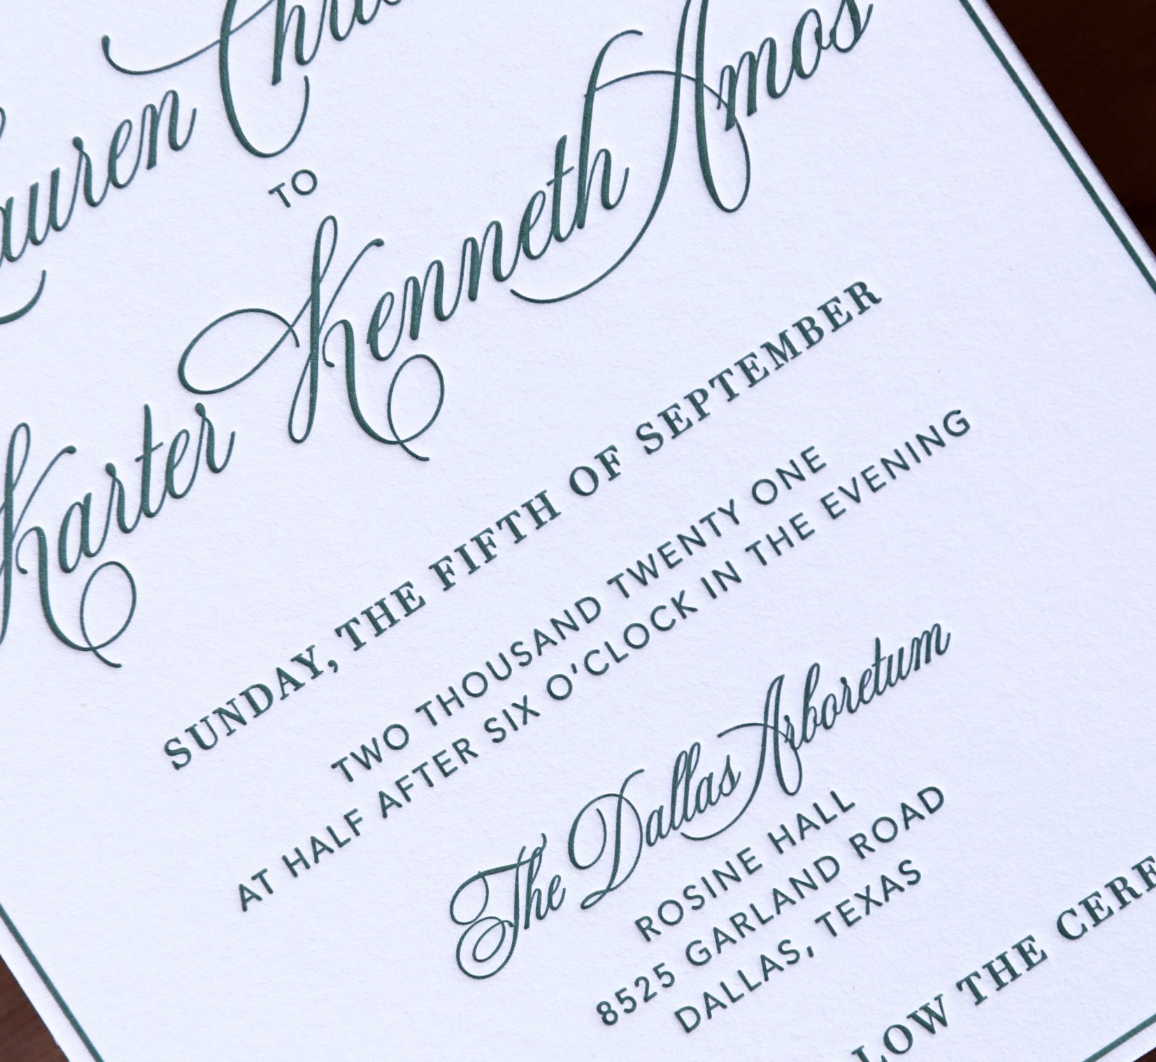 TO
Karter Kenneth Amos
SUNDAY, THE FIFTH OF SEPTEMBER
TWO THOUSAND TWENTY ONE
AT HALF AFTER SIX O'CLOCK IN THE EVENING
The Dallas Arboretum
ROSINE HALL
8525 GARLAND ROAD
DALLAS, TEXAS
THE